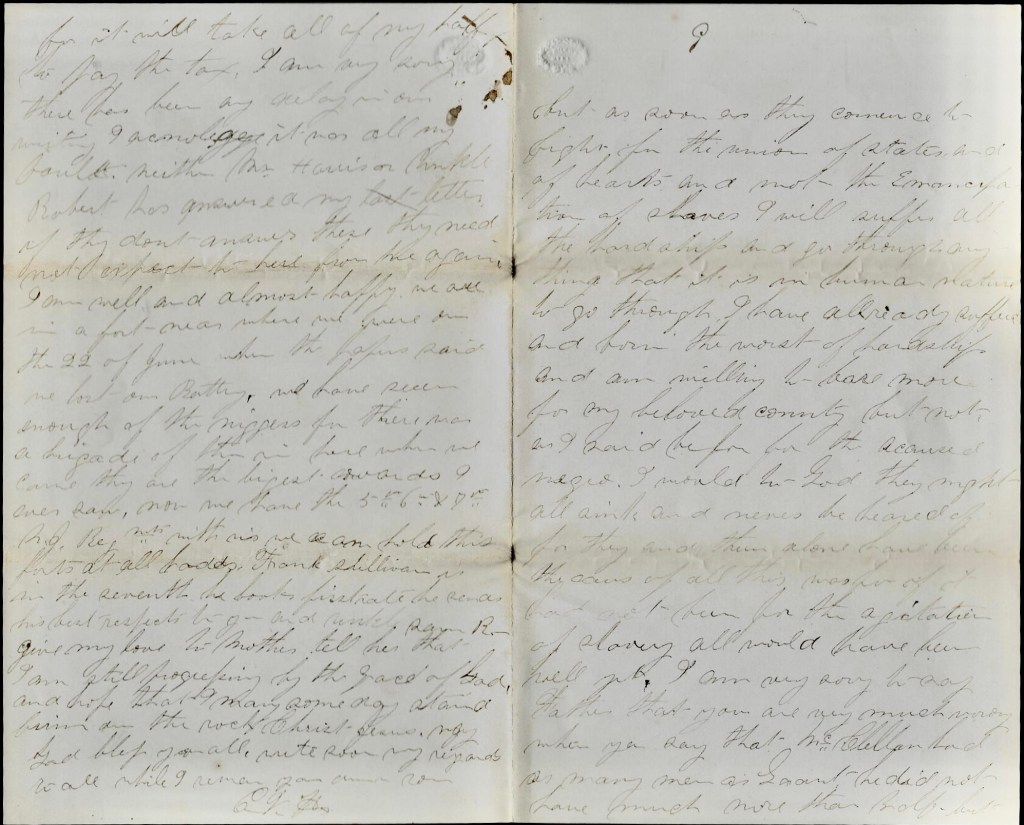 for it will take all of my half
to pay the tax, I am very sorry
there has been any delay in our
writing I aconolegge it was all my
fault neither Mr Harrison
Robert has answered my last letter
if they dont answer these they need
not expect to here from me again
I am well and almost happy. we are
in a fort near where we were on
the 22 of June when the papers said
we lost our Battry, we have seen
enough of the niggers for there was
a brigade of them in here when we
came they are the bigest cowards I
ever saw, now we have the 5th 6th & 7th
Reg nts with us we can hold this
forts at all hadds, Frank Sullivan is
in the seventh he looks firstrate he sends
his best respects to you and
give my love to Mother tell her that
I am still progressing by the grace of God,
and hope that I may some day stand
firm on the rock Christ Jesus, may
God bless you all, write soon my regards
to all while I remain your
9
but as soon as they comence to
fight for the union of states and
of hearts and not the Emancipa
tion of slaves I will suffer all
the hardships and go through any
thing that it is in human nature
to go through, I have allready suffered
and born the worst of hardships
and am willing to bare more
for my beloved county but not
as I said before for the acaused
negro. I would to God they might
all sink and never be heared of
for they and them alone have been
the caus of all this war for if it
had not been for the agitation
of slavery all would have been
well yet, I am very sorry to say
Father that you are very much wrong
when you say that McClellan had
as many men as Grant he did not
have much more than half but